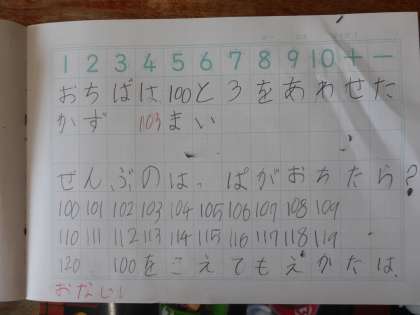 1 2 3 4 5 6 7 8 9 10 + −
おちばは、100と3をあわせた
かず 103まい
ぜんぶのはっぱがおちたら?
100 101 102 103 104 105 106 107 108 109
110 111 112 113 114 115 116 117 118 119
120 100をこえてもえかたは
おなじ!